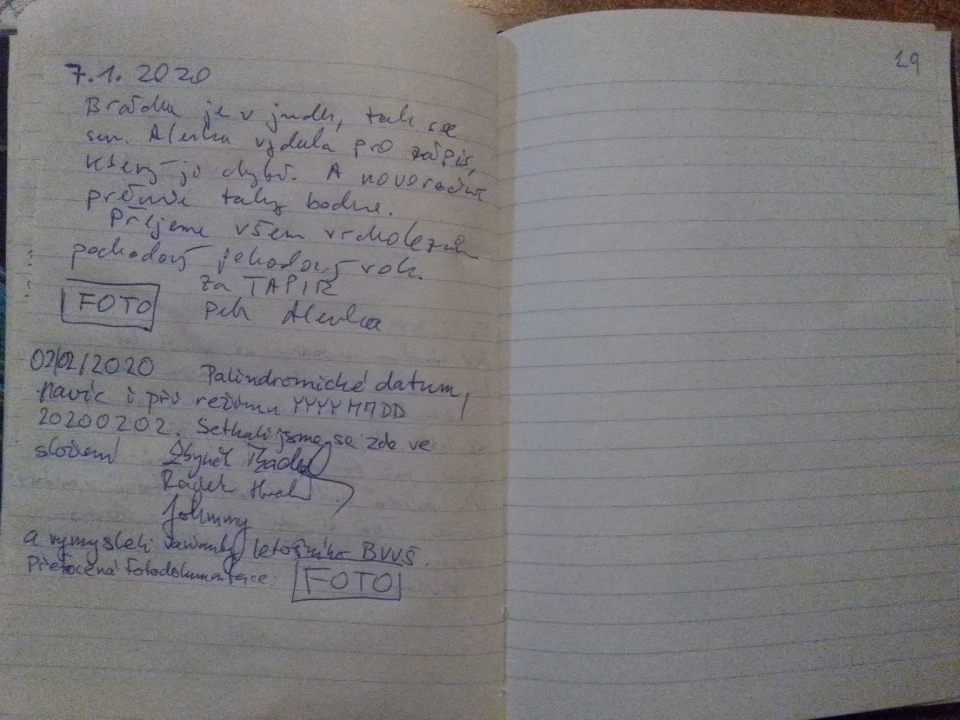 7.1. 2020
Brádka je v jude, tak se
sem Alenka vydala pro zápis,
který jí chybí. A novoroční
prémie taky bodne.
Přejeme všem vrcholezcům
pochodový jehodový rok.
za TAPIR
Petr Alenka
FOTO
02/02/2020 Palindromické datum,
navíc i při režimu YYYYMMDD
20200202. Setkali jsme se zde ve
složení Zbyněk
Radek
Johnny
a vymysleli varianty letošního BVVŠ.
Přetočená fotodokumentace. FOTO
29